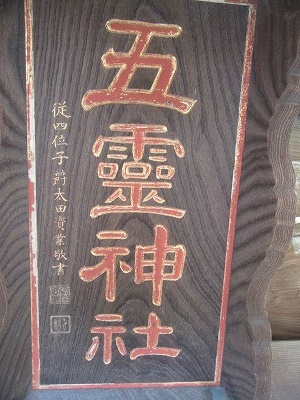 五靈神社
従四位子爵太田資業敬書